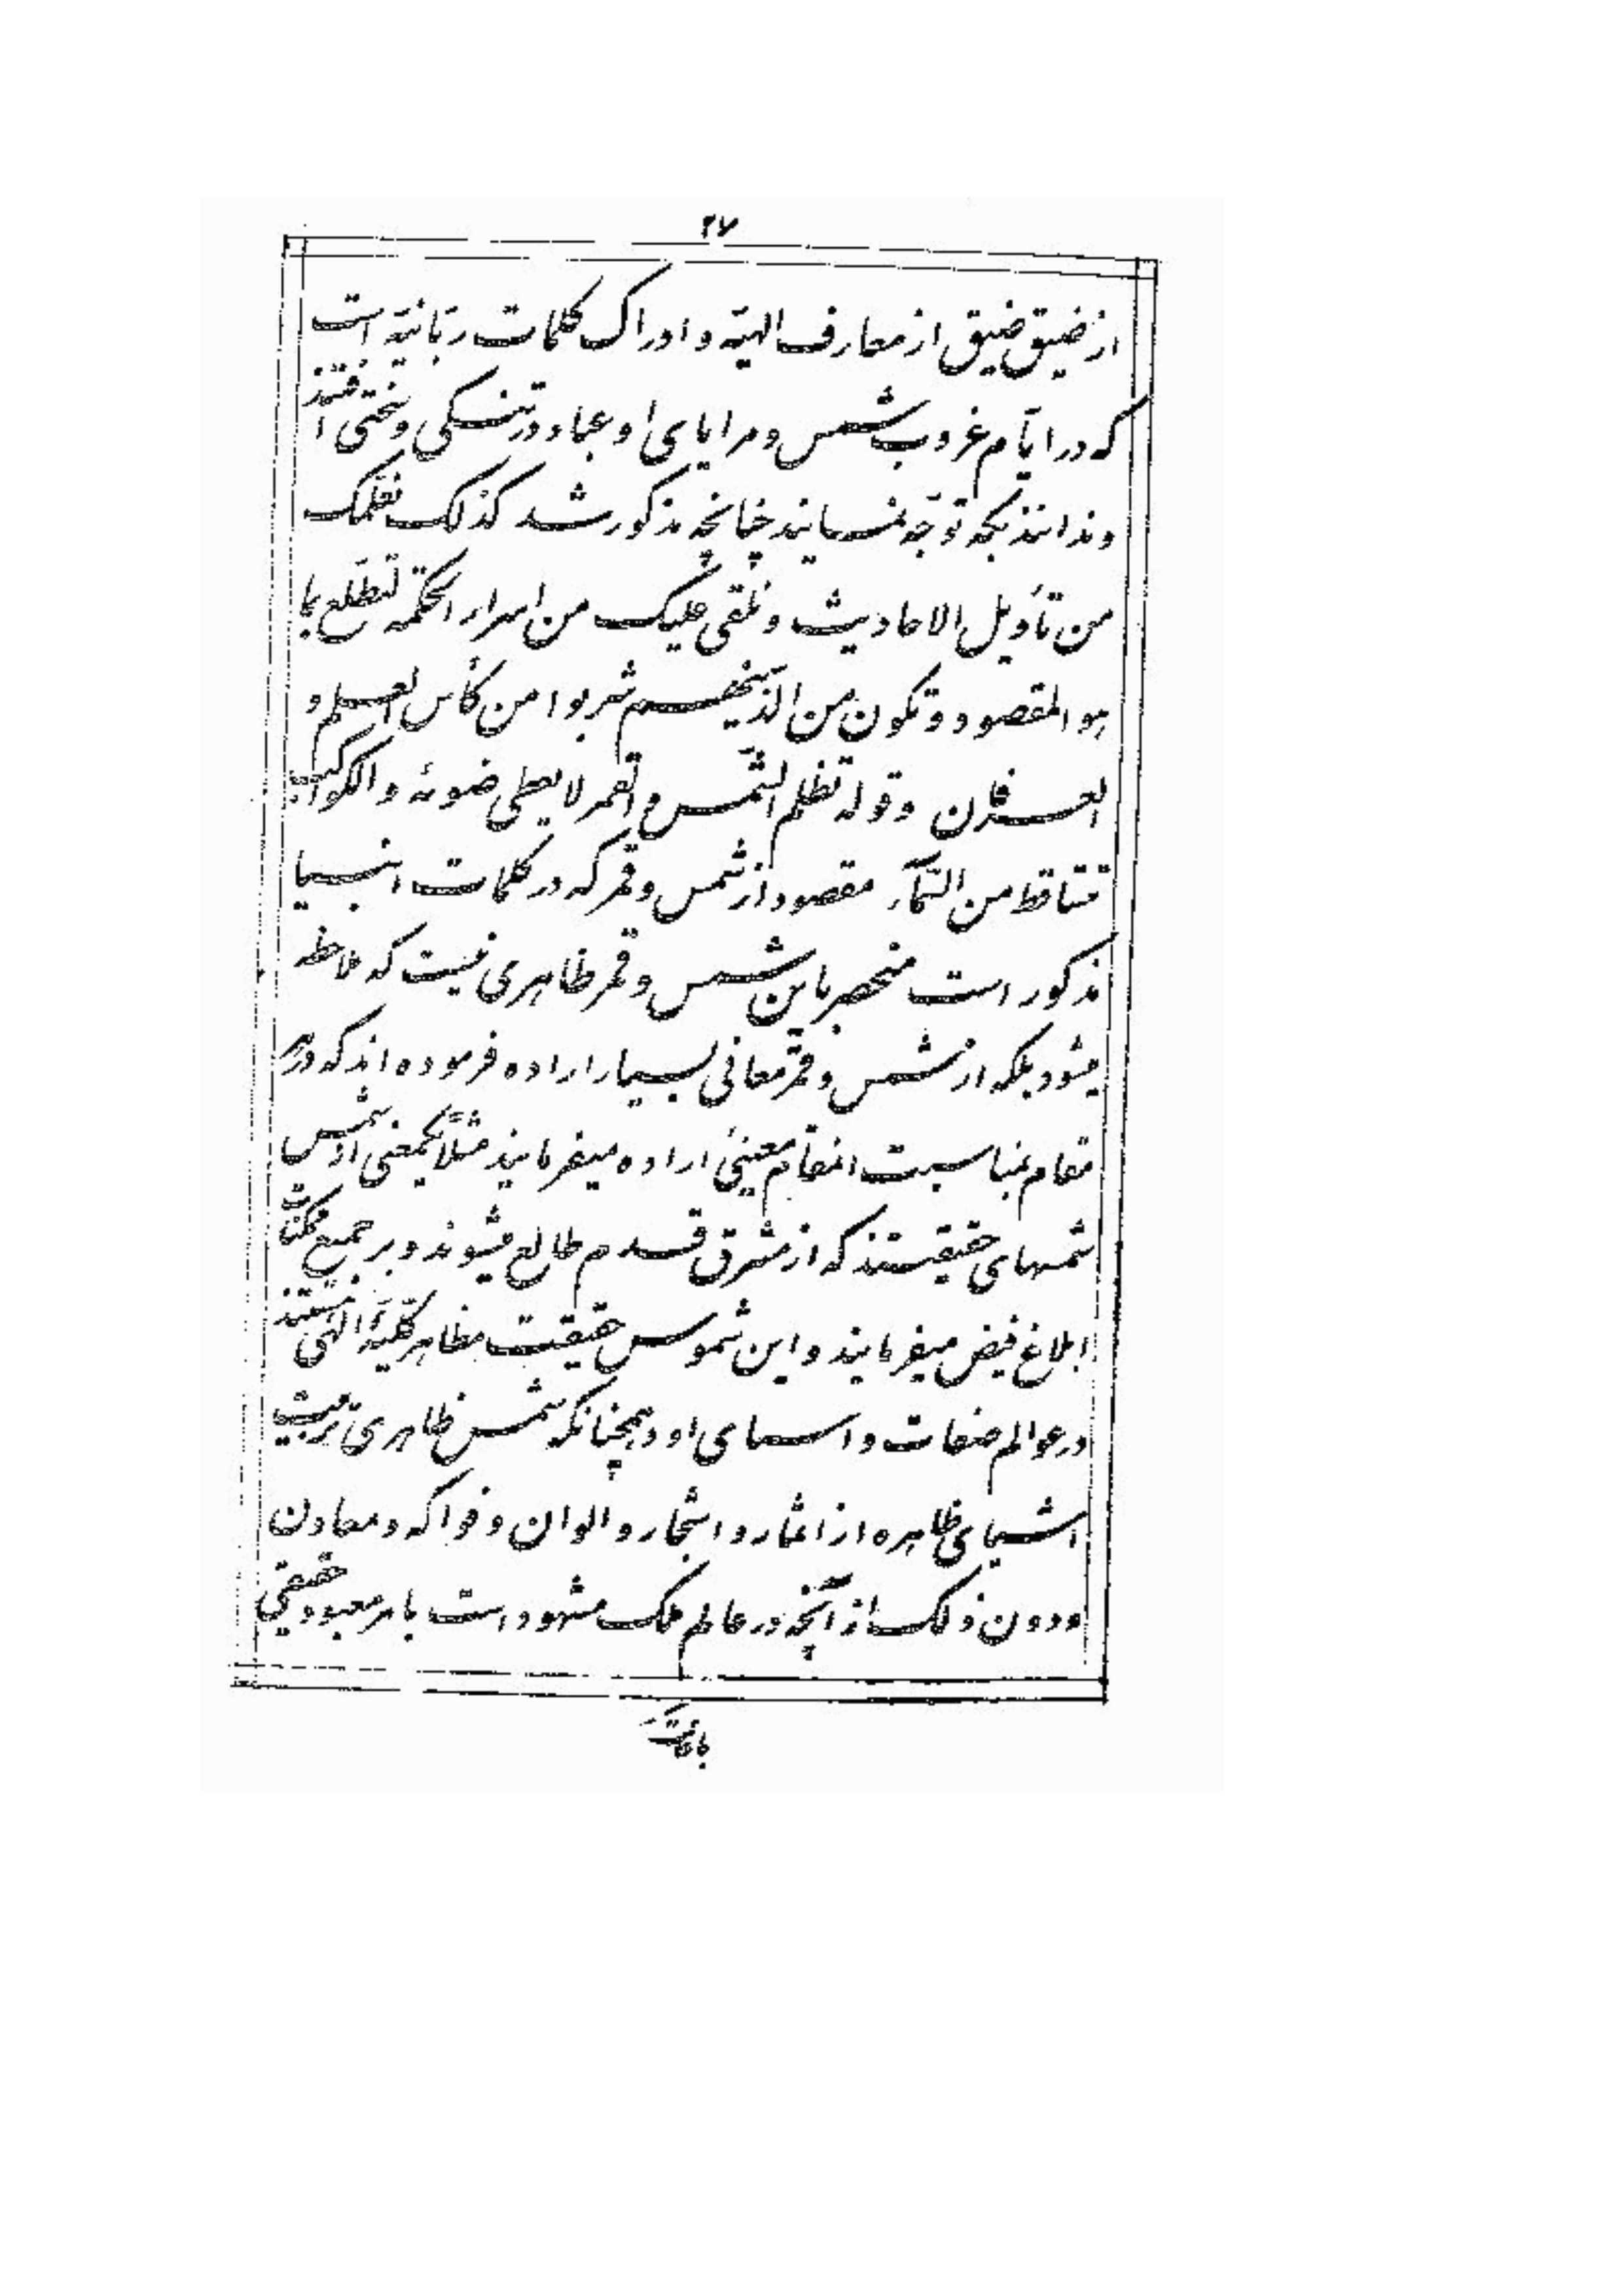 ٢٧
از ضیق ضیق از معارف الهیّه و ادراک کلمات ربّانیّه است
که در ایّام غروب شمس و مرایای او عباد در تنگی و سختی افتند
و ندانند بکه توجّه نمایند چنانچه مذکور شد کذلک نعلّمک
من تأویل الاحادیث و نلقی علیک من اسرار الحکمة لتطّلع بما
هو المقصود و تکون من الّذینهم شربوا من کأس العلم و
العرفان و قوله تظلم الشّمس و القمر لا یعطی ضوئه و الکواکب
تتساقط من السّمآء مقصود از شمس و قمر که در کلمات انبیا
مذکور است منحصر باین شمس و قمر ظاهری نیست که ملاحظه
میشود بلکه از شمس و قمر معانی بسیار اراده فرموده‌اند که در هر
مقام بمناسبت انمقام معنیٔ اراده میفرمایند مثلاً یکمعنی از شمس
شمسهای حقیقتند که از مشرق قدم طالع میشوند و بر جمیع ممکنات
ابلاغ فیض میفرمایند و این شموس حقیقت مظاهر کلّیّهٔ الهی هستند
در عوالم صفات و اسمای او و همچنانکه شمس ظاهری تربیت
اشیای ظاهره از اثمار و اشجار و الوان و فواکه و معادن
و دون ذلک از آنچه در عالم ملک مشهود است بامر معبود حقیقی
باعانت